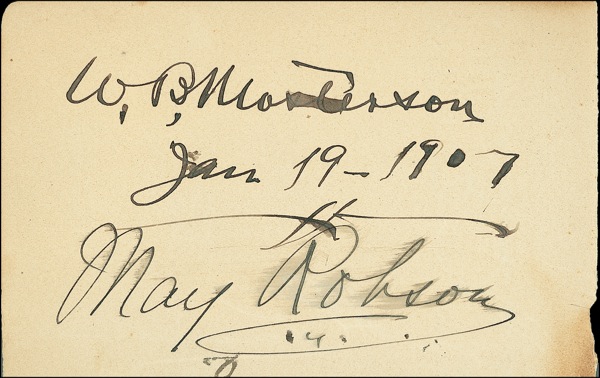 W. B. Masterson
Jan 19 - 1907
May Robson